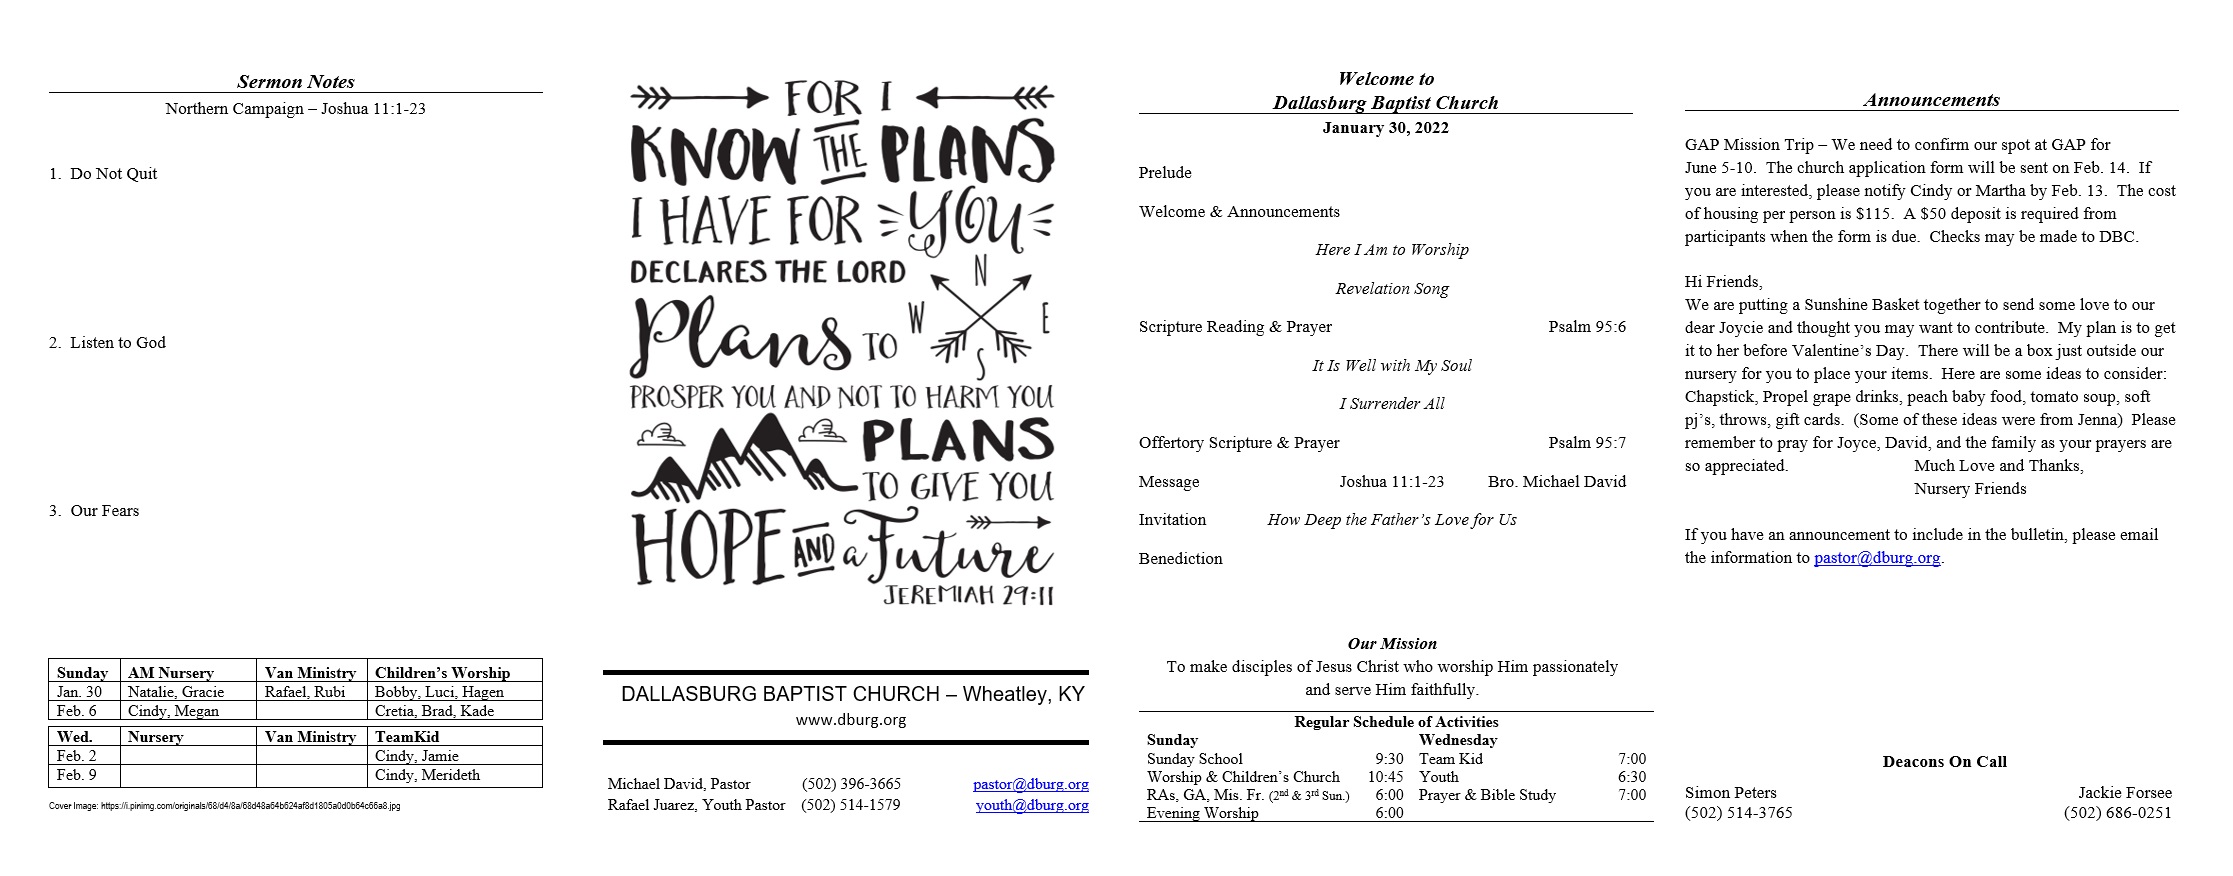 Sermon Notes
Northern Campaign – Joshua 11:1-23
1. Do Not Quit
2. Listen to God
3. Our Fears
Sunday AM Nursery Van Ministry Children's Worship
Jan. 30 Natalie, Gracie Rafael, Rubi Bobby, Luci, Hagen
Feb. 6 Cindy, Megan Cretia, Brad, Kade
Wed. Nursery Van Ministry TeamKid
Feb. 2 Cindy, Jamie
Feb. 9 Cindy, Merideth
Cover Image: https://i.pinimg.com/originals/68/d4/8a/68d48a64b624af8d1805a0d0b64c66a8.jpg
FOR I
KNOW THE PLANS
I HAVE FOR YOU
DECLARES THE LORD
N
W E
S
Plans TO
PROSPER YOU AND NOT TO HARM YOU
PLANS
TO GIVE YOU
HOPE AND a Future
JEREMIAH 29:11
DALLASBURG BAPTIST CHURCH – Wheatley, KY
www.dburg.org
Michael David, Pastor (502) 396-3665 pastor@dburg.org
Rafael Juarez, Youth Pastor (502) 514-1579 youth@dburg.org
Welcome to
Dallasburg Baptist Church
January 30, 2022
Prelude
Welcome & Announcements
Here I Am to Worship
Revelation Song
Scripture Reading & Prayer Psalm 95:6
It Is Well with My Soul
I Surrender All
Offertory Scripture & Prayer Psalm 95:7
Message Joshua 11:1-23 Bro. Michael David
Invitation How Deep the Father's Love for Us
Benediction
Our Mission
To make disciples of Jesus Christ who worship Him passionately
and serve Him faithfully.
Regular Schedule of Activities
Sunday Wednesday
Sunday School 9:30 Team Kid 7:00
Worship & Children's Church 10:45 Youth 6:30
RAs, GA, Mis. Fr. (2nd & 3rd Sun.) 6:00 Prayer & Bible Study 7:00
Evening Worship 6:00
Announcements
GAP Mission Trip – We need to confirm our spot at GAP for
June 5-10. The church application form will be sent on Feb. 14. If
you are interested, please notify Cindy or Martha by Feb. 13. The cost
of housing per person is $115. A $50 deposit is required from
participants when the form is due. Checks may be made to DBC.
Hi Friends,
We are putting a Sunshine Basket together to send some love to our
dear Joycie and thought you may want to contribute. My plan is to get
it to her before Valentine's Day. There will be a box just outside our
nursery for you to place your items. Here are some ideas to consider:
Chapstick, Propel grape drinks, peach baby food, tomato soup, soft
pj's, throws, gift cards. (Some of these ideas were from Jenna) Please
remember to pray for Joyce, David, and the family as your prayers are
so appreciated. Much Love and Thanks,
Nursery Friends
If you have an announcement to include in the bulletin, please email
the information to pastor@dburg.org.
Deacons On Call
Simon Peters Jackie Forsee
(502) 514-3765 (502) 686-0251